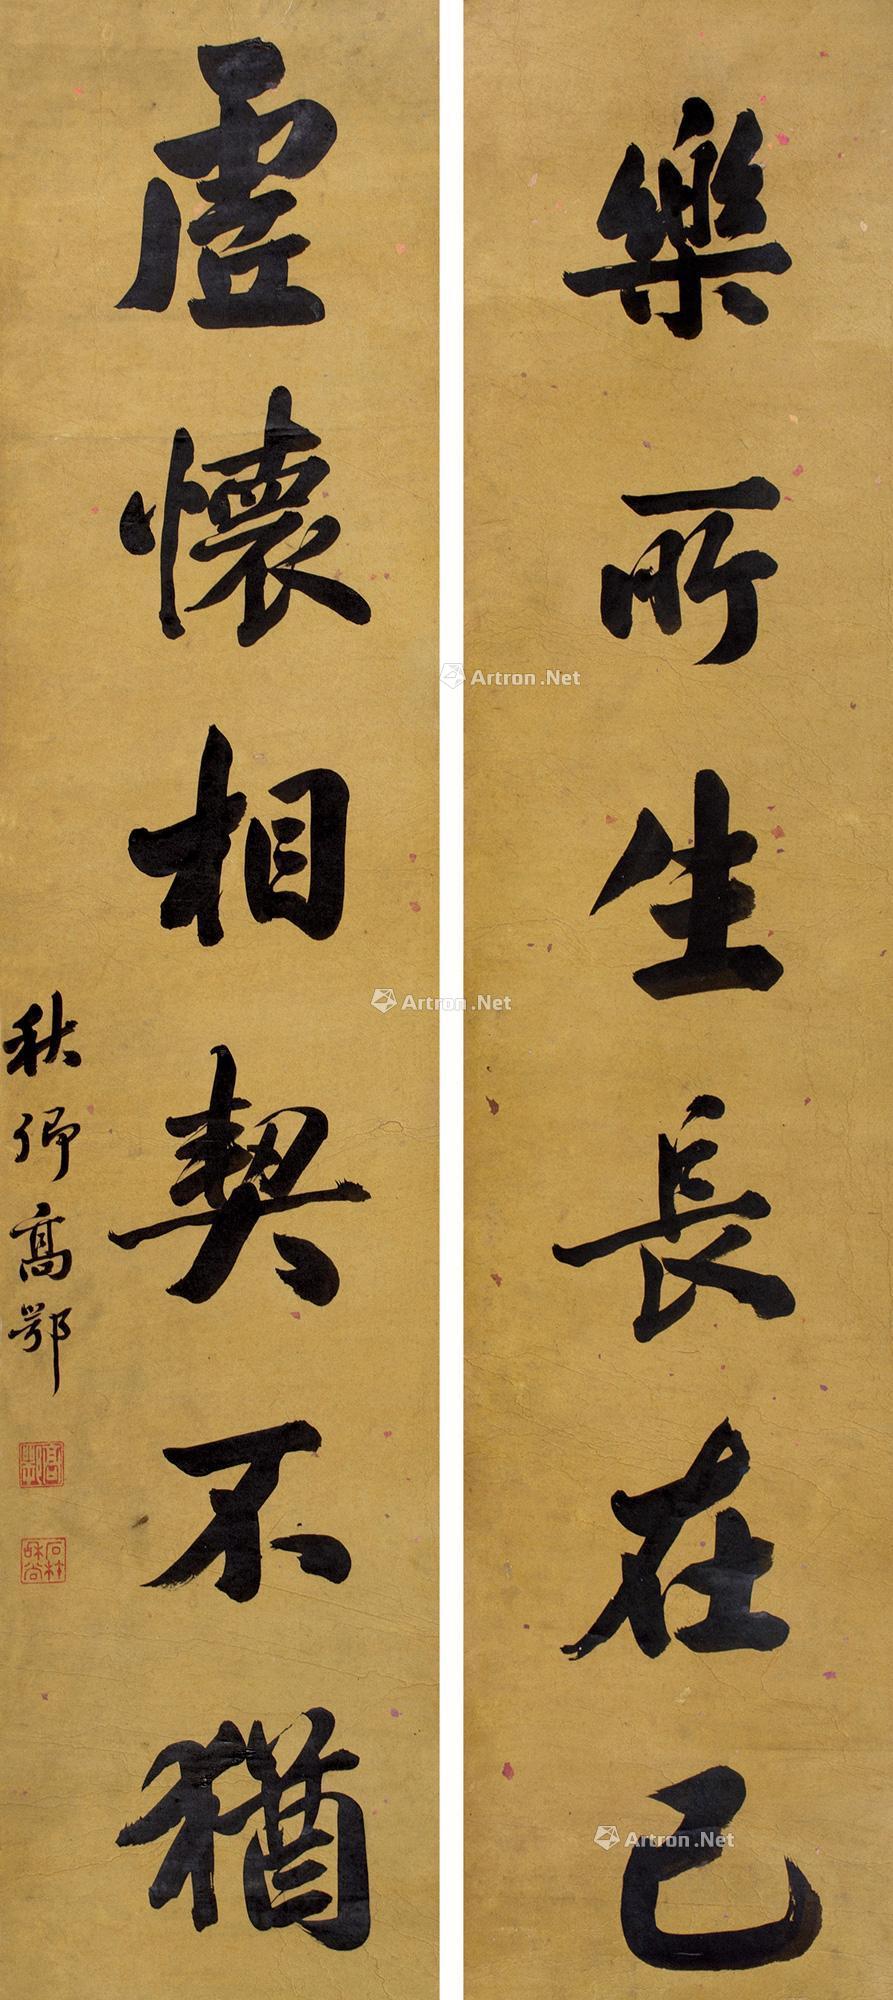 樂所生長在己
虛懷相契不猶
秋卿高鄂
高鄂
Artron.Net
Artron.Net
Artron.Net